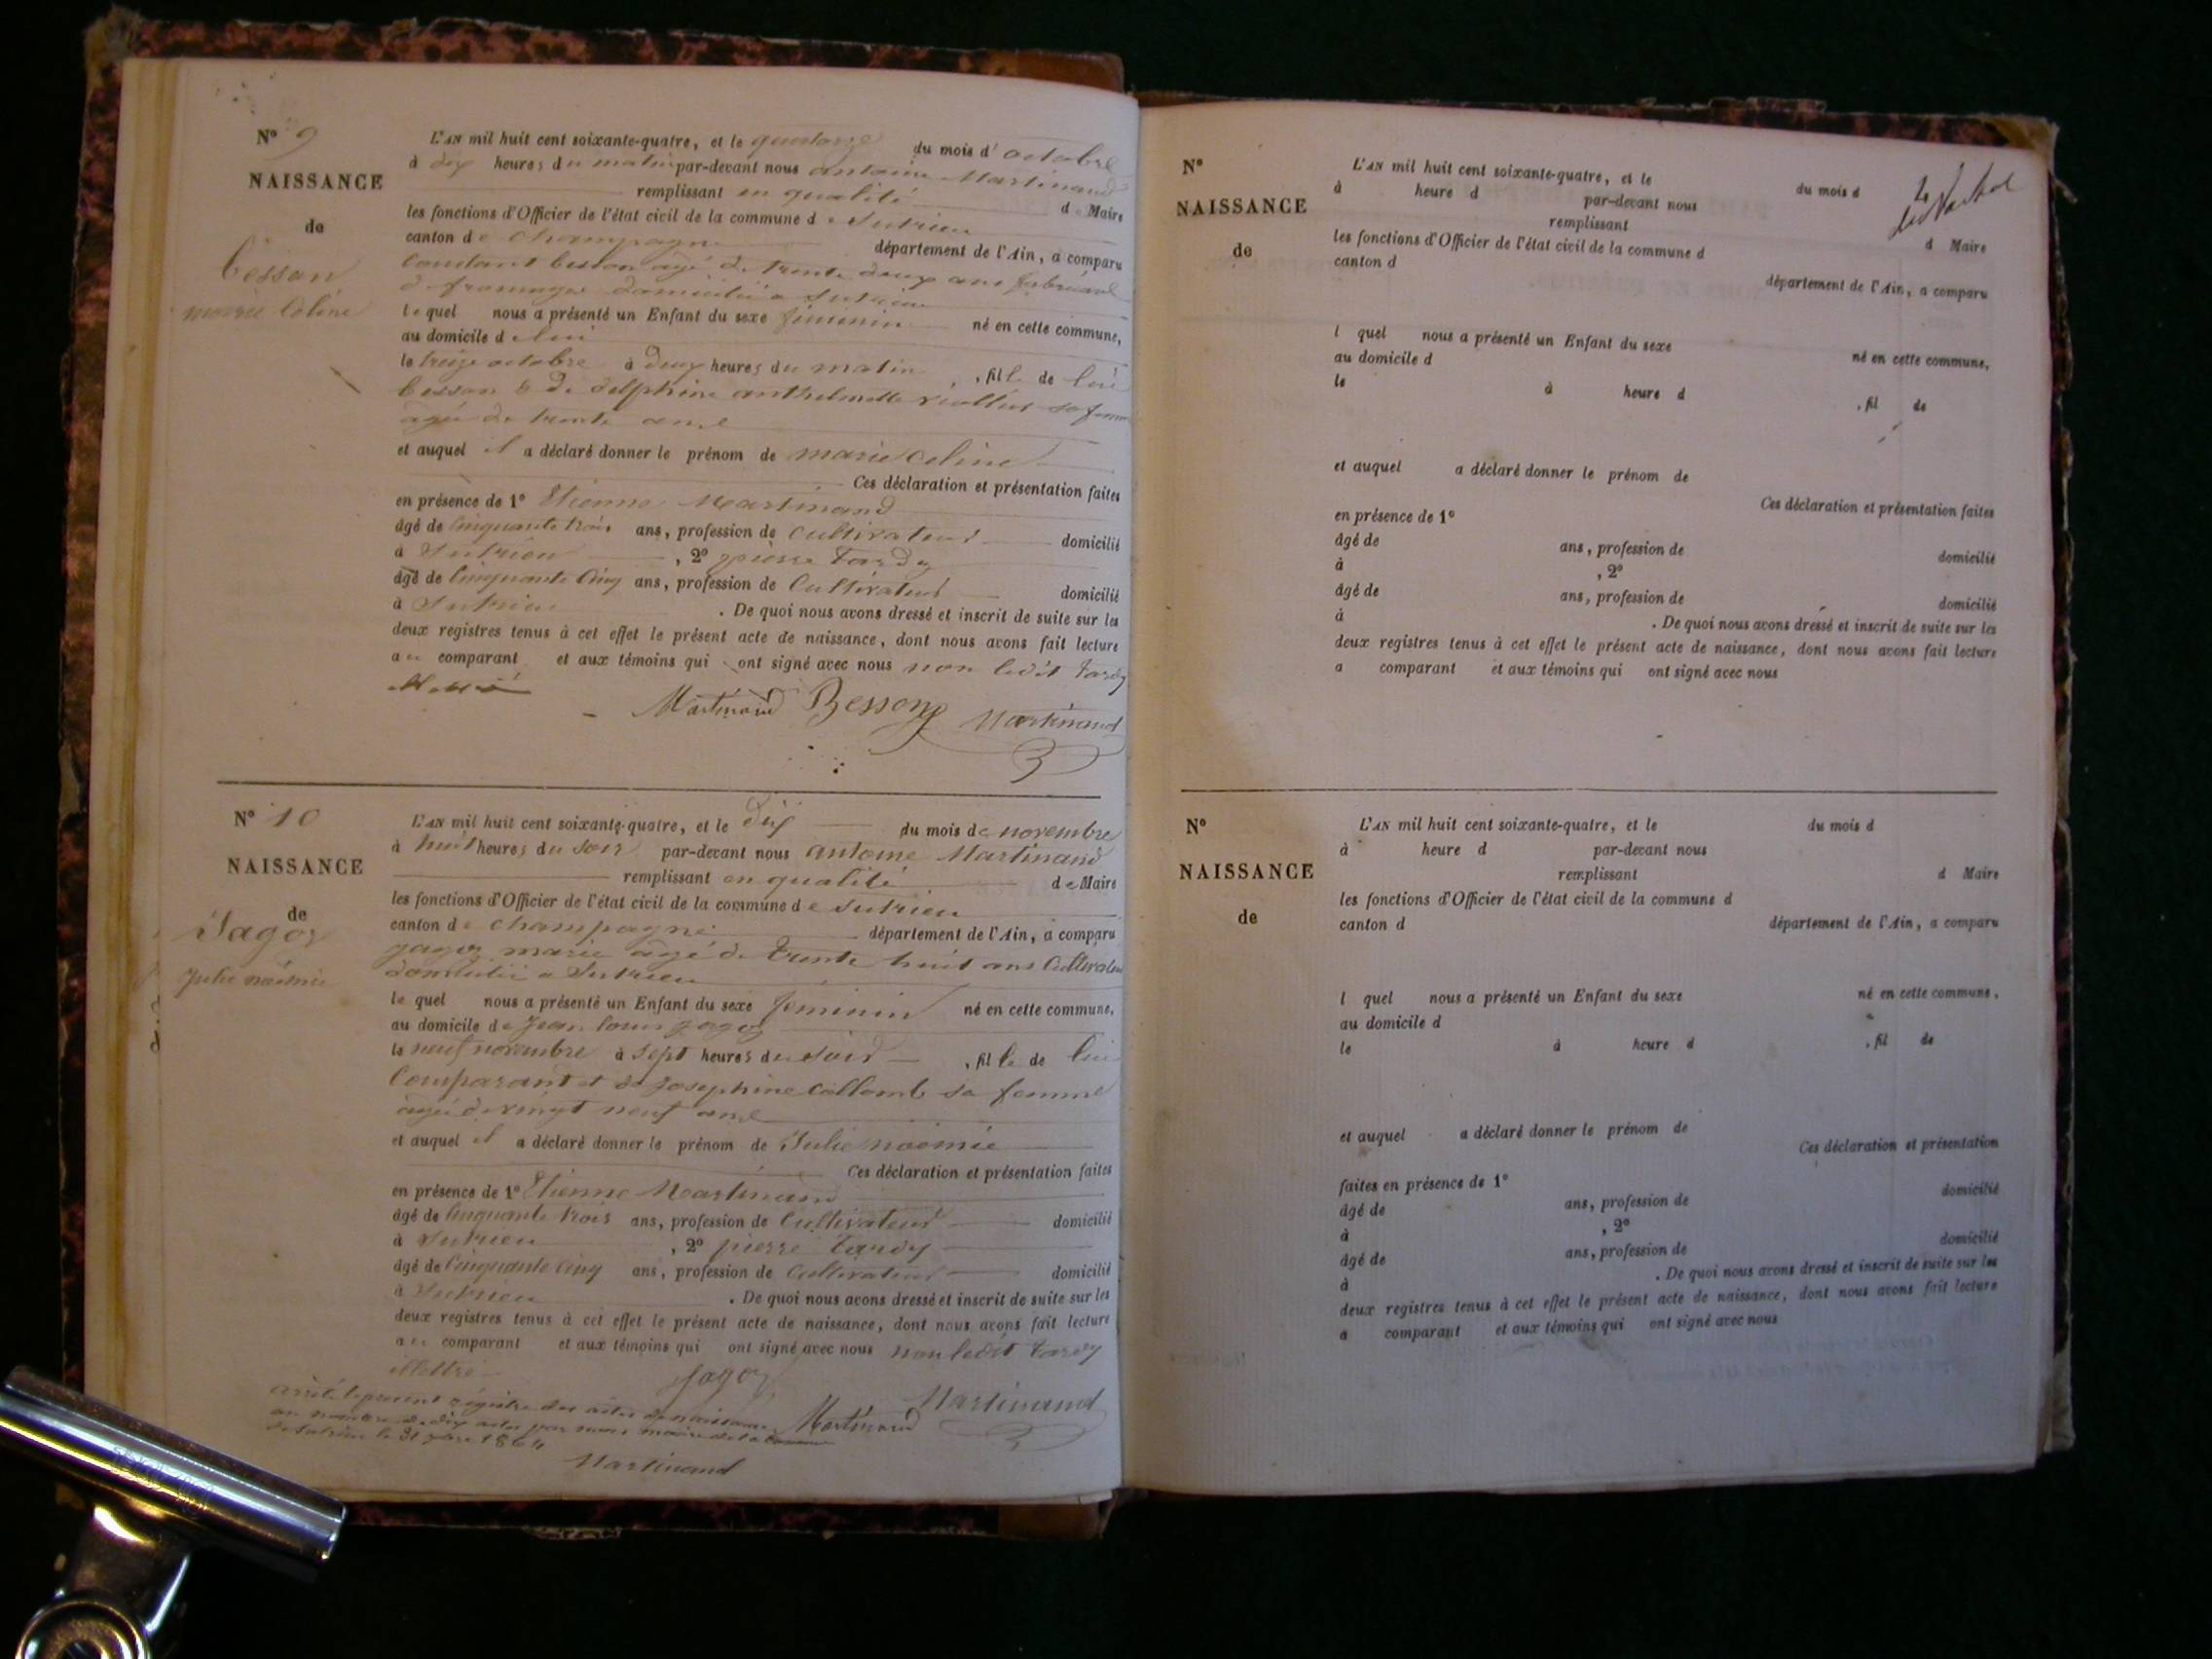 N° 9
NAISSANCE
de
Besson
marie Céline
L'AN mil huit cent soixante-quatre, et le quatorze du mois d'octobre
à dix heures du matin par-devant nous antoine Martinand
remplissant en qualité de Maire
les fonctions d'Officier de l'état civil de la commune de Sutrieu
canton de Champagne département de l'Ain, a comparu
Constant Besson agé de trente deux ans fabricant
de fromages domicilié a Sutrieu
lequel nous a présenté un Enfant du sexe féminin né en cette commune,
au domicile de lui
le treize octobre à deux heures du matin, fille de lui
besson & de delphine anthelmette sa femme
agée de trente ans
et auquel il a déclaré donner le prénom de marie Celine
Ces déclaration et présentation faites
en présence de 1° Etienne Martinand
âgé de Cinquante trois ans, profession de Cultivateur domicilié
à Sutrieu, 2° pierre Tardy
âgé de Cinquante Cinq ans, profession de Cultivateur domicilié
à Sutrieu. De quoi nous avons dressé et inscrit de suite sur les
deux registres tenus à cet effet le présent acte de naissance, dont nous avons fait lecture
au comparant et aux témoins qui ont signé avec nous non ledit Tardy
illettré
Martinand Besson Martinand
N° 10
NAISSANCE
de
Jagoz
Julie naémie
L'AN mil huit cent soixante-quatre, et le dix du mois de novembre
à huit heures du soir par-devant nous antoine Martinand
remplissant en qualité de Maire
les fonctions d'Officier de l'état civil de la commune de Sutrieu
canton de Champagne département de l'Ain, a comparu
jagoz marie agé de trente huit ans Cultivateur
domicilié a Sutrieu
lequel nous a présenté un Enfant du sexe feminin né en cette commune,
au domicile de Jean louis jagoz
le neuf novembre à sept heures du soir, fille de lui
Comparant et de Josephine Collomb sa femme
agée de vingt neuf ans
et auquel il a déclaré donner le prénom de Julie naémie
Ces déclaration et présentation faites
en présence de 1° Etienne Martinand
âgé de Cinquante trois ans, profession de Cultivateur domicilié
à Sutrieu, 2° pierre Tardy
âgé de Cinquante Cinq ans, profession de Cultivateur domicilié
à Sutrieu. De quoi nous avons dressé et inscrit de suite sur les
deux registres tenus à cet effet le présent acte de naissance, dont nous avons fait lecture
au comparant et aux témoins qui ont signé avec nous non ledit Tardy
illettré
Jagoz
Martinand Martinand
arrêté le present régistre des actes de naissance
au nombre de dix actes par nous maire de la commune
de Sutrieu le 31 xbre 1864
Martinand
N°
NAISSANCE
de
L'AN mil huit cent soixante-quatre, et le du mois d
à heure d par-devant nous
remplissant d Maire
les fonctions d'Officier de l'état civil de la commune d
canton d département de l'Ain, a comparu
l quel nous a présenté un Enfant du sexe né en cette commune,
au domicile d
le à heure d, fil de
et auquel a déclaré donner le prénom de
Ces déclaration et présentation faites
en présence de 1°
âgé de ans, profession de domicilié
à , 2°
âgé de ans, profession de domicilié
à . De quoi nous avons dressé et inscrit de suite sur les
deux registres tenus à cet effet le présent acte de naissance, dont nous avons fait lecture
a comparant et aux témoins qui ont signé avec nous
N°
NAISSANCE
de
L'AN mil huit cent soixante-quatre, et le du mois d
à heure d par-devant nous
remplissant d Maire
les fonctions d'Officier de l'état civil de la commune d
canton d département de l'Ain, a comparu
l quel nous a présenté un Enfant du sexe né en cette commune,
au domicile d
le à heure d, fil de
et auquel a déclaré donner le prénom de
Ces déclaration et présentation
faites en présence de 1°
âgé de ans, profession de domicilié
à , 2°
âgé de ans, profession de domicilié
à . De quoi nous avons dressé et inscrit de suite sur les
deux registres tenus à cet effet le présent acte de naissance, dont nous avons fait lecture
a comparant et aux témoins qui ont signé avec nous